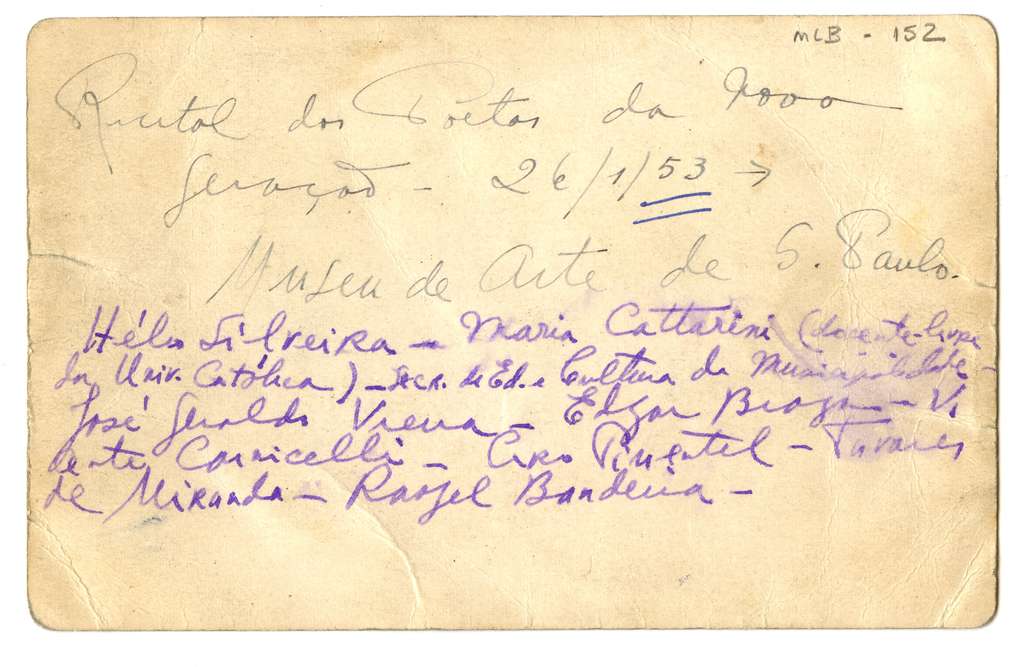 MLB - 152
Recital dos Poetas da Nova
Geração - 26/1/53 →
Museu de Arte de S. Paulo.
Hélio Silveira - Maria Cattarini (docente-livre
da Univ. Católica) - Secr. de Ed. e Cultura da Municipalidade -
José Geraldo Vieira - Edgar Braga - Vi
cente Carnicelli - Ciro Pimentel - Tavares
de Miranda - Rangel Bandeira -